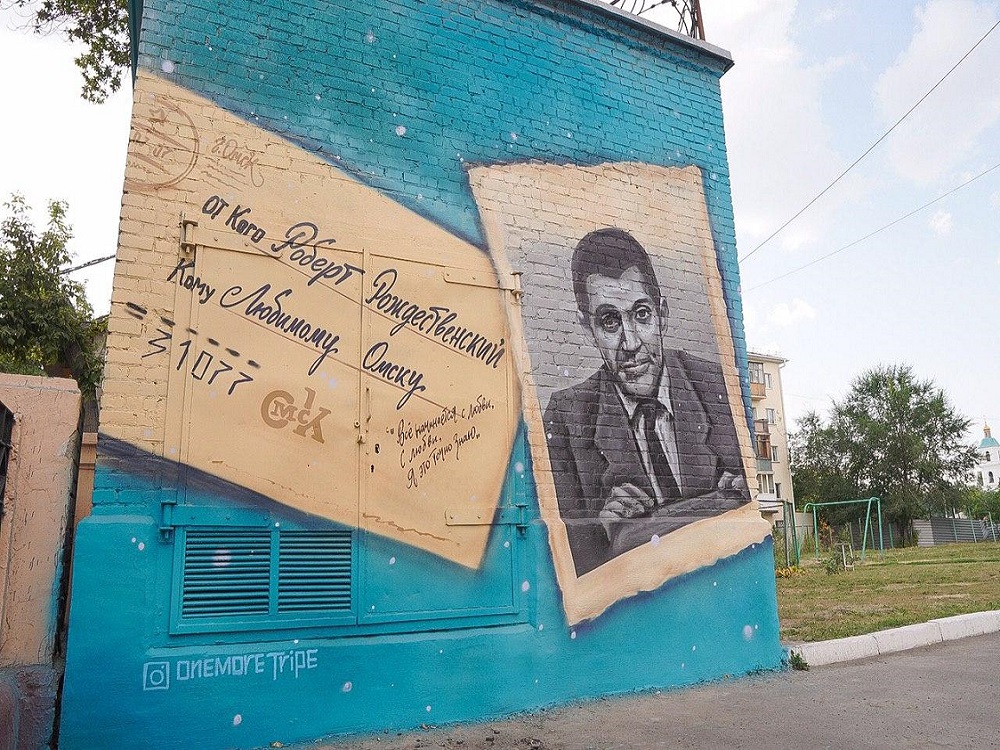 г. Омск
от Кого Роберт Рождественский
Кому Любимому Омску
31077
Омск
"Всё начинается с любви,
С любви.
Я это точно знаю..
onemore Tripe